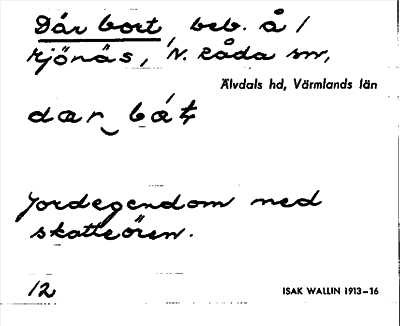 Där bort, beb. å /
Kjönäs, N. Råda sn,
Älvdals hd, Värmlands län
dar‿bát
Jordegendom med
skatteören.
12
ISAK WALLIN 1913–16